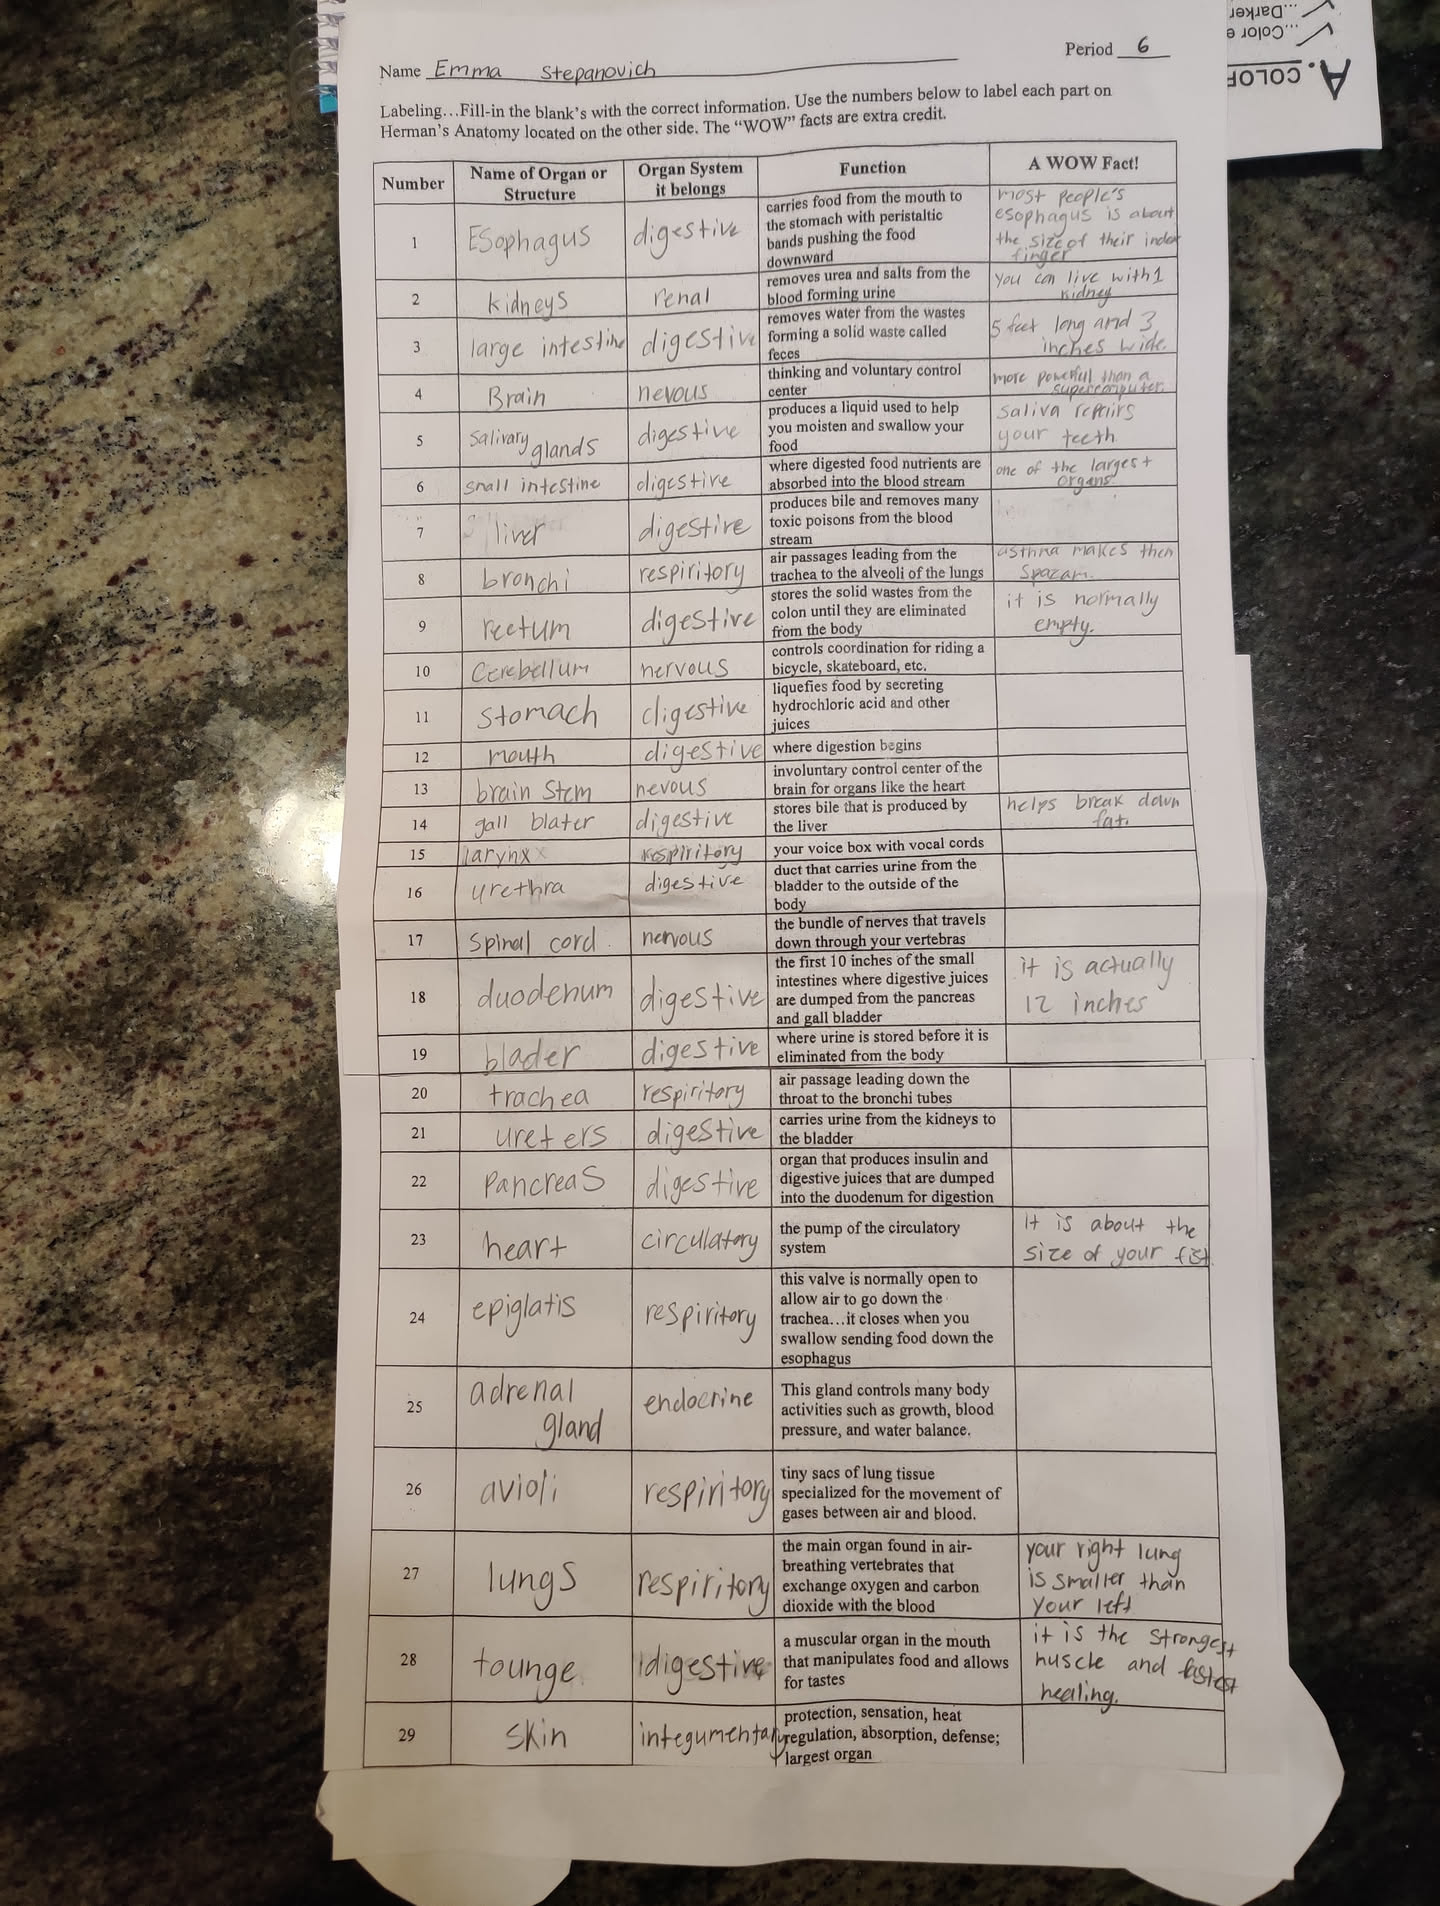 Period 6
Name Emma Stepanovich
Labeling…Fill-in the blank's with the correct information. Use the numbers below to label each part on
Herman's Anatomy located on the other side. The "WOW" facts are extra credit.
Number
Name of Organ or
Structure
Organ System
it belongs
Function
A WOW Fact!
1
Esophagus
digestive
carries food from the mouth to
the stomach with peristaltic
bands pushing the food
downward
most people's
esophagus is about
the size of their index
finger
2
kidneys
renal
removes urea and salts from the
blood forming urine
you can live with 1
kidney
3
large intestine
digestive
removes water from the wastes
forming a solid waste called
feces
5 feet long and 3
inches wide.
4
Brain
nevous
thinking and voluntary control
center
more powerful than a
supercomputer.
5
salivary
glands
digestive
produces a liquid used to help
you moisten and swallow your
food
saliva repairs
your teeth
6
small intestine
digestive
where digested food nutrients are
absorbed into the blood stream
one of the largest
organs
7
liver
digestive
produces bile and removes many
toxic poisons from the blood
stream
8
bronchi
respiritory
air passages leading from the
trachea to the alveoli of the lungs
asthma makes them
spazam.
9
rectum
digestive
stores the solid wastes from the
colon until they are eliminated
from the body
it is normally
empty.
10
Cerebellum
nervous
controls coordination for riding a
bicycle, skateboard, etc.
11
stomach
digestive
liquefies food by secreting
hydrochloric acid and other
juices
12
mouth
digestive
where digestion begins
13
brain stem
nevous
involuntary control center of the
brain for organs like the heart
14
gall blater
digestive
stores bile that is produced by
the liver
helps break down
fat.
15
larynx
respiritory
your voice box with vocal cords
16
urethra
digestive
duct that carries urine from the
bladder to the outside of the
body
17
spinal cord
nervous
the bundle of nerves that travels
down through your vertebras
18
duodenum
digestive
the first 10 inches of the small
intestines where digestive juices
are dumped from the pancreas
and gall bladder
it is actually
12 inches
19
blader
digestive
where urine is stored before it is
eliminated from the body
20
trachea
respiritory
air passage leading down the
throat to the bronchi tubes
21
ureters
digestive
carries urine from the kidneys to
the bladder
22
Pancreas
digestive
organ that produces insulin and
digestive juices that are dumped
into the duodenum for digestion
23
heart
circulatory
the pump of the circulatory
system
it is about the
size of your fist
24
epiglatis
respiritory
this valve is normally open to
allow air to go down the
trachea…it closes when you
swallow sending food down the
esophagus
25
adrenal
gland
endocrine
This gland controls many body
activities such as growth, blood
pressure, and water balance.
26
avioli
respiritory
tiny sacs of lung tissue
specialized for the movement of
gases between air and blood.
27
lungs
respiritory
the main organ found in air-
breathing vertebrates that
exchange oxygen and carbon
dioxide with the blood
your right lung
is smaller than
your left
28
tounge
digestive
a muscular organ in the mouth
that manipulates food and allows
for tastes
it is the strongest
muscle and fastest
healing.
29
skin
integumentary
protection, sensation, heat
regulation, absorption, defense;
largest organ
A. COLOR
…Color e
…Darker